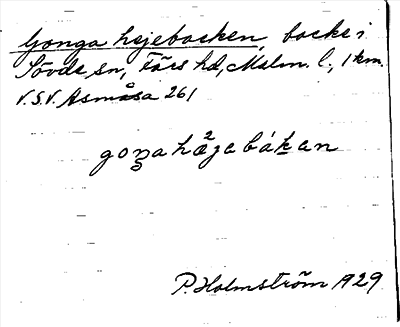 Gonga hejebacken, backe i
Sövde sn, Färs hd, Malm. l., 1 km.
V.S.V. Åsmåsa 261
P. Holmström 1929